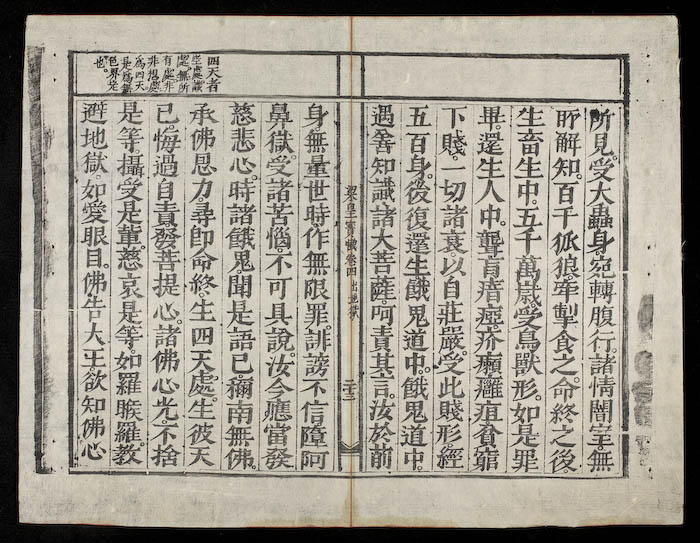 所見。受大蟲身。宛轉腹行。諸情闇室。無
所解知。百千狐狼。牽掣食之。命終之後。
生畜生中。五千萬歲。受鳥獸形。如是罪
畢。還生人中。聾盲瘖瘂。疥癩癰疽。貧窮
下賤。一切諸衰。以自莊嚴。受此賤形。經
五百身。後復還生餓鬼道中。餓鬼道中。
遇善知識。諸大菩薩。呵責其言。汝於前
梁皇寶懺卷四 出地獄 二十三
四天者
空處識
處無所
有處非
非想處
為四天
是為無
色界定
也。
身。無量世時。作無限罪。誹謗不信。墮阿
鼻獄。受諸苦惱。不可具說。汝今應當發
慈悲心。時諸餓鬼。聞是語已。稱南無佛。
承佛恩力。尋即命終。生四天處。生彼天
已。悔過自責。發菩提心。諸佛心光。不捨
是等。攝受是輩。慈哀是等。如羅睺羅。教
避地獄。如愛眼目。佛告大王。欲知佛心